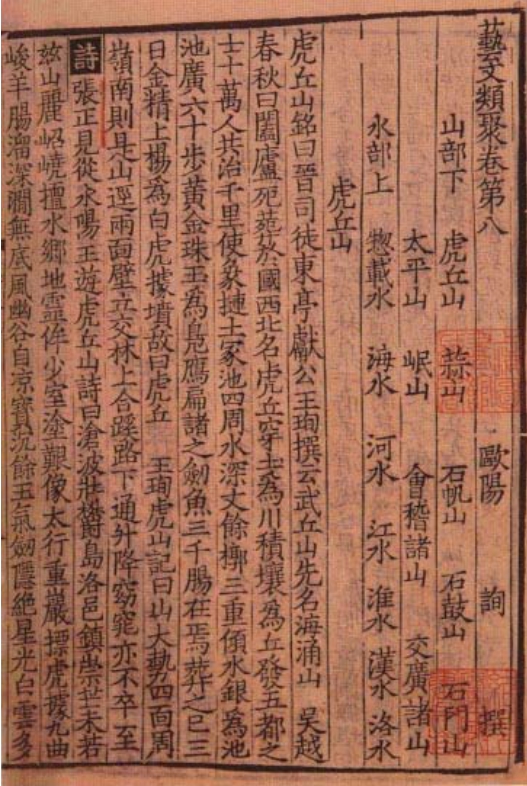 藝文類聚卷第八 歐陽 詢 撰
山部下 虎丘山 蒜山 石帆山 石鼓山 石門山
太平山 岷山 會稽諸山 交廣諸山
水部上 揔載水 海水 河水 江水 淮水 漢水 洛水
虎丘山
虎丘山銘曰晉司徒東亭獻公王珣撰云武丘山先名海涌山 吳越
春秋曰闔廬死葬於國西北名虎丘穿土為川積壤為丘發五都之
士十萬人共治千里使象摙土冢池四周水深丈餘槨三重傾水銀為池
池廣六十步黄金珠玉為鳧鴈扁諸之劒魚三千腸在焉葬之已三
日金精上楊為白虎據墳故曰虎丘 王珣虎山記曰山大勢四面周
嶺南則是山逕兩面壁立交林上合蹊路下通升降窈窕亦不卒至
詩 張正見從永陽王遊虎丘山詩曰滄波壯鬱島洛邑鎮崇芒未若
茲山麗岹嶢擅水鄉地靈侔少室塗艱像太行重巖摽虎據九曲
峻羊腸溜深澗無底風幽谷自凉寶沉餘玉氣劒隱絶星光白雲多